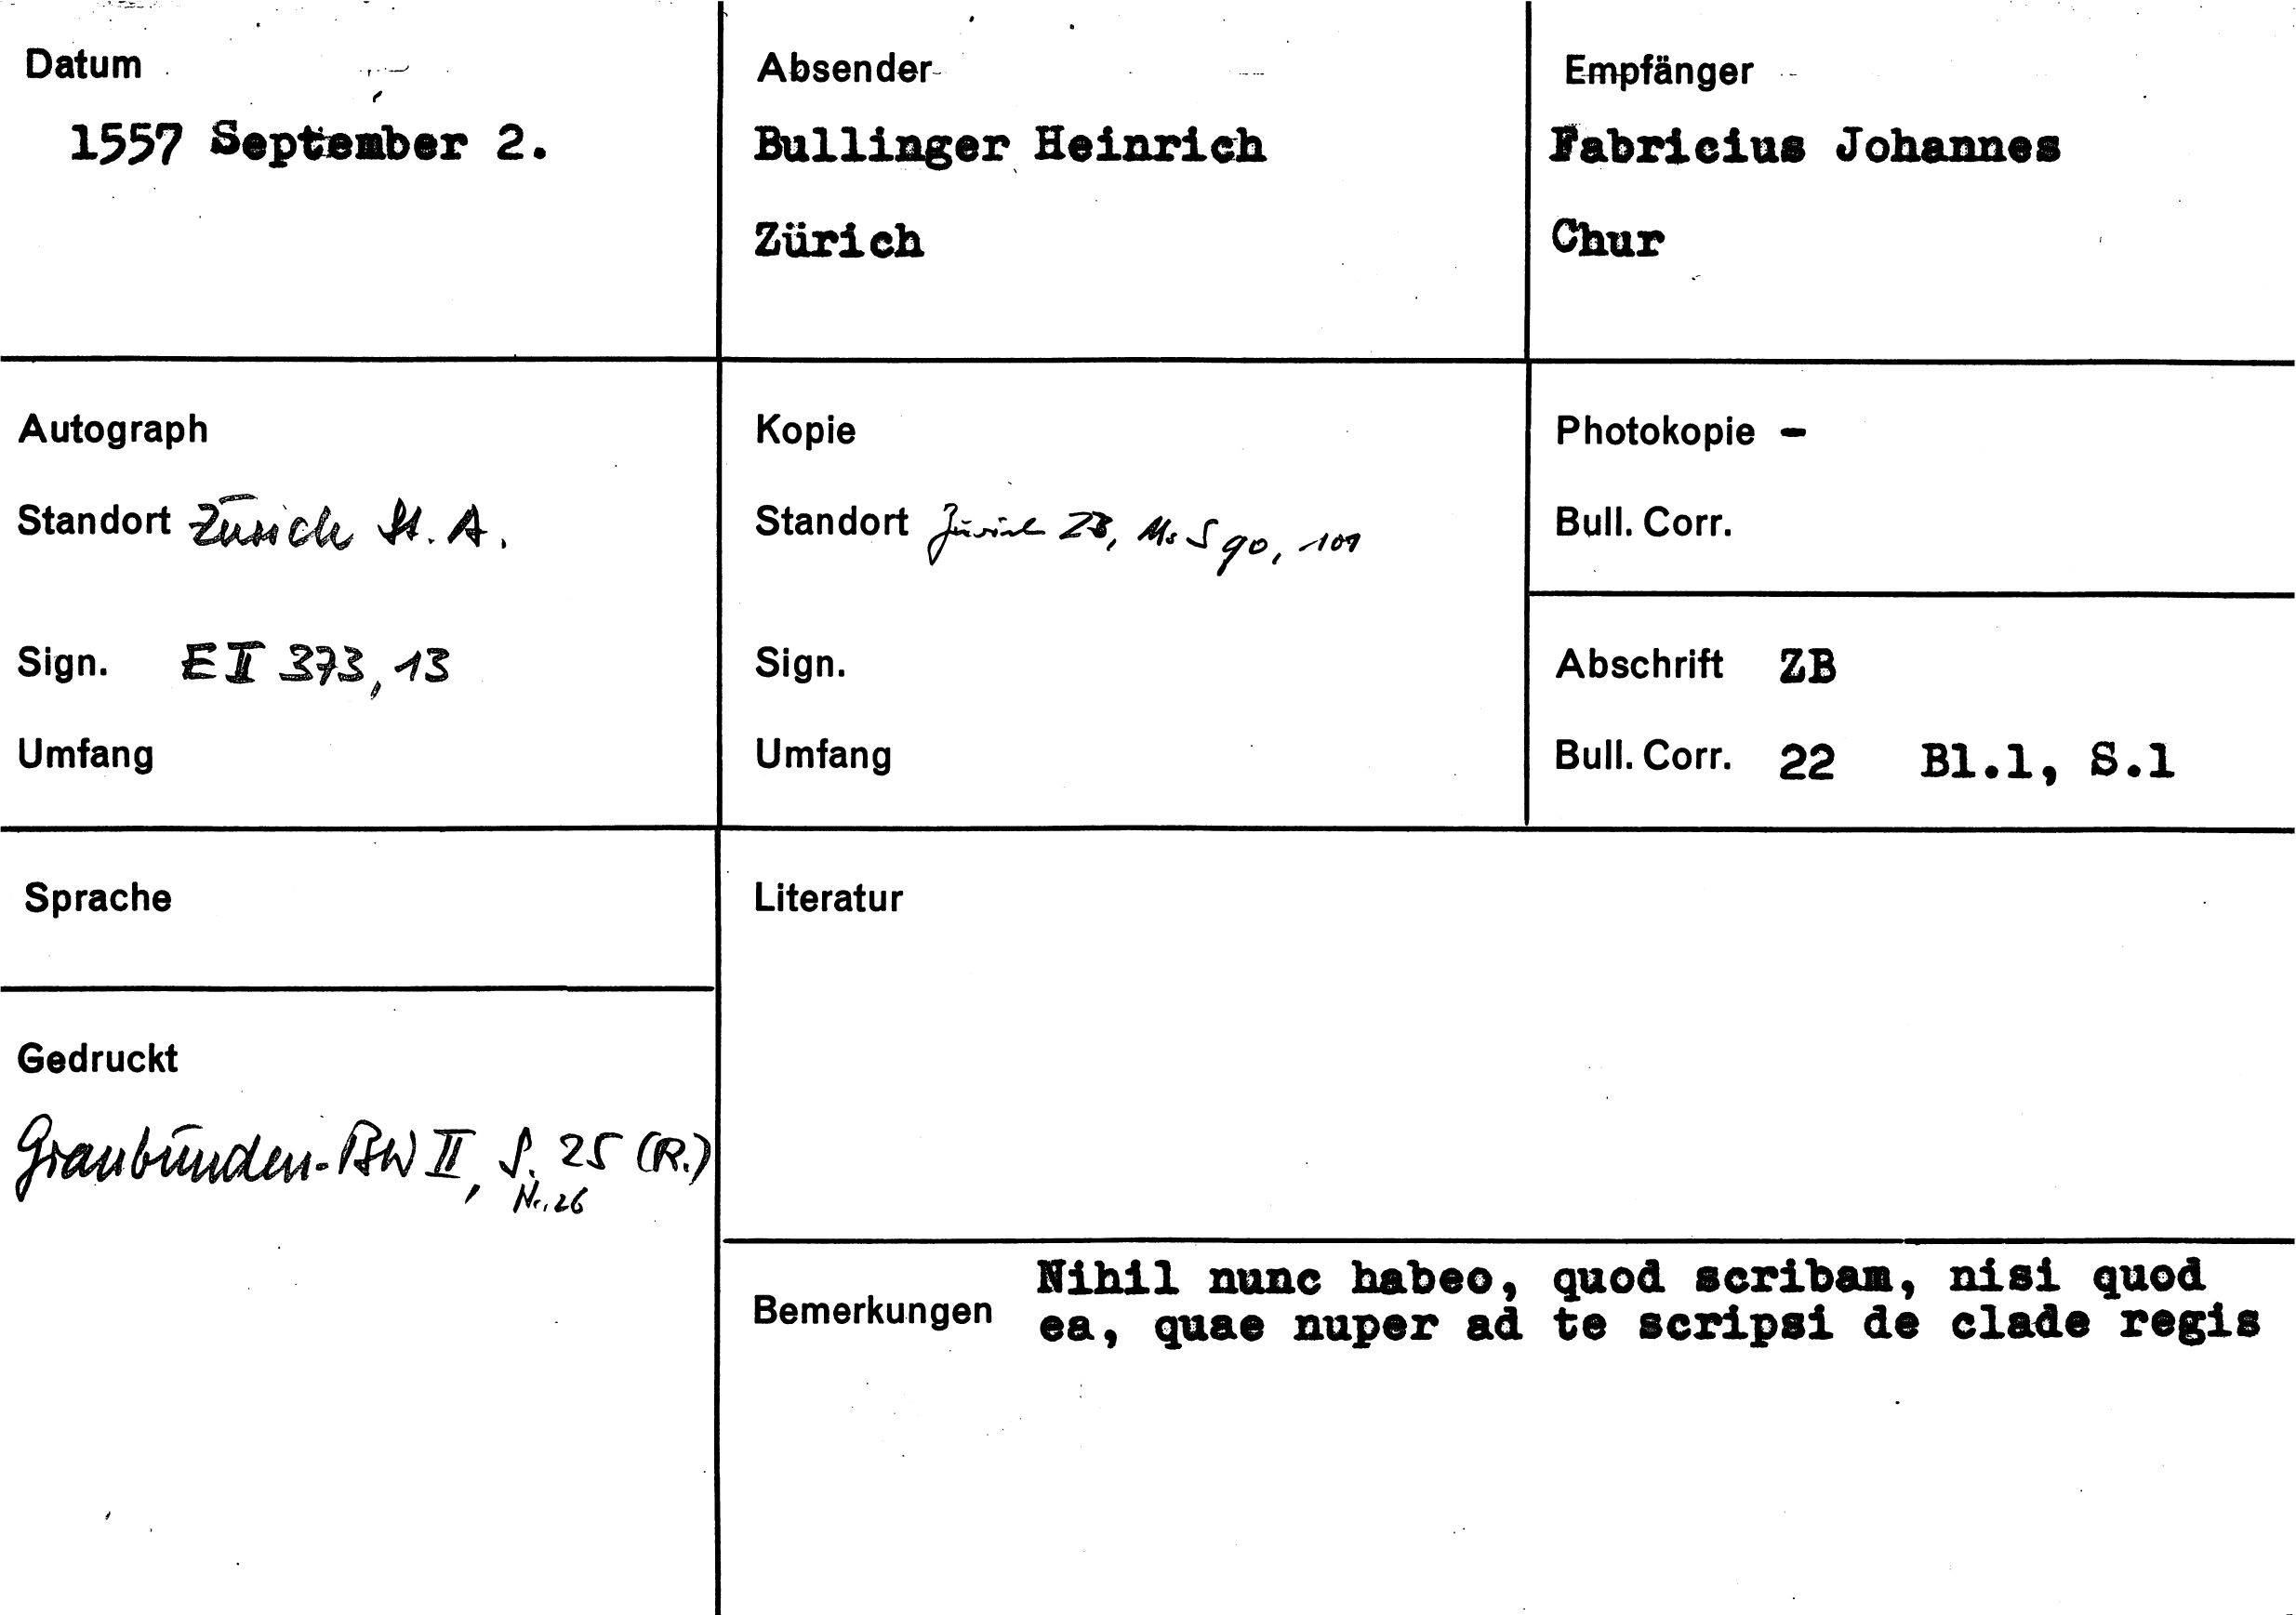 Datum
1557 September 2.
Absender
Bullinger Heinrich
Zürich
Empfänger
Fabricius Johannes
Chur
Autograph
Standort Zürich St. A.
Sign. E II 373, 13
Umfang
Kopie
Standort Zürich ZB, Ms S 90, 101
Sign.
Umfang
Photokopie -
Bull. Corr.
Abschrift ZB
Bull. Corr. 22 Bl.1, S.1
Sprache
Gedruckt
Graubünden-BW II, S. 25 (R.)
Nr. 26
Literatur
Bemerkungen
Nihil nunc habeo, quod scribam, nisi quod
ea, quae nuper ad te scripsi de clade regis